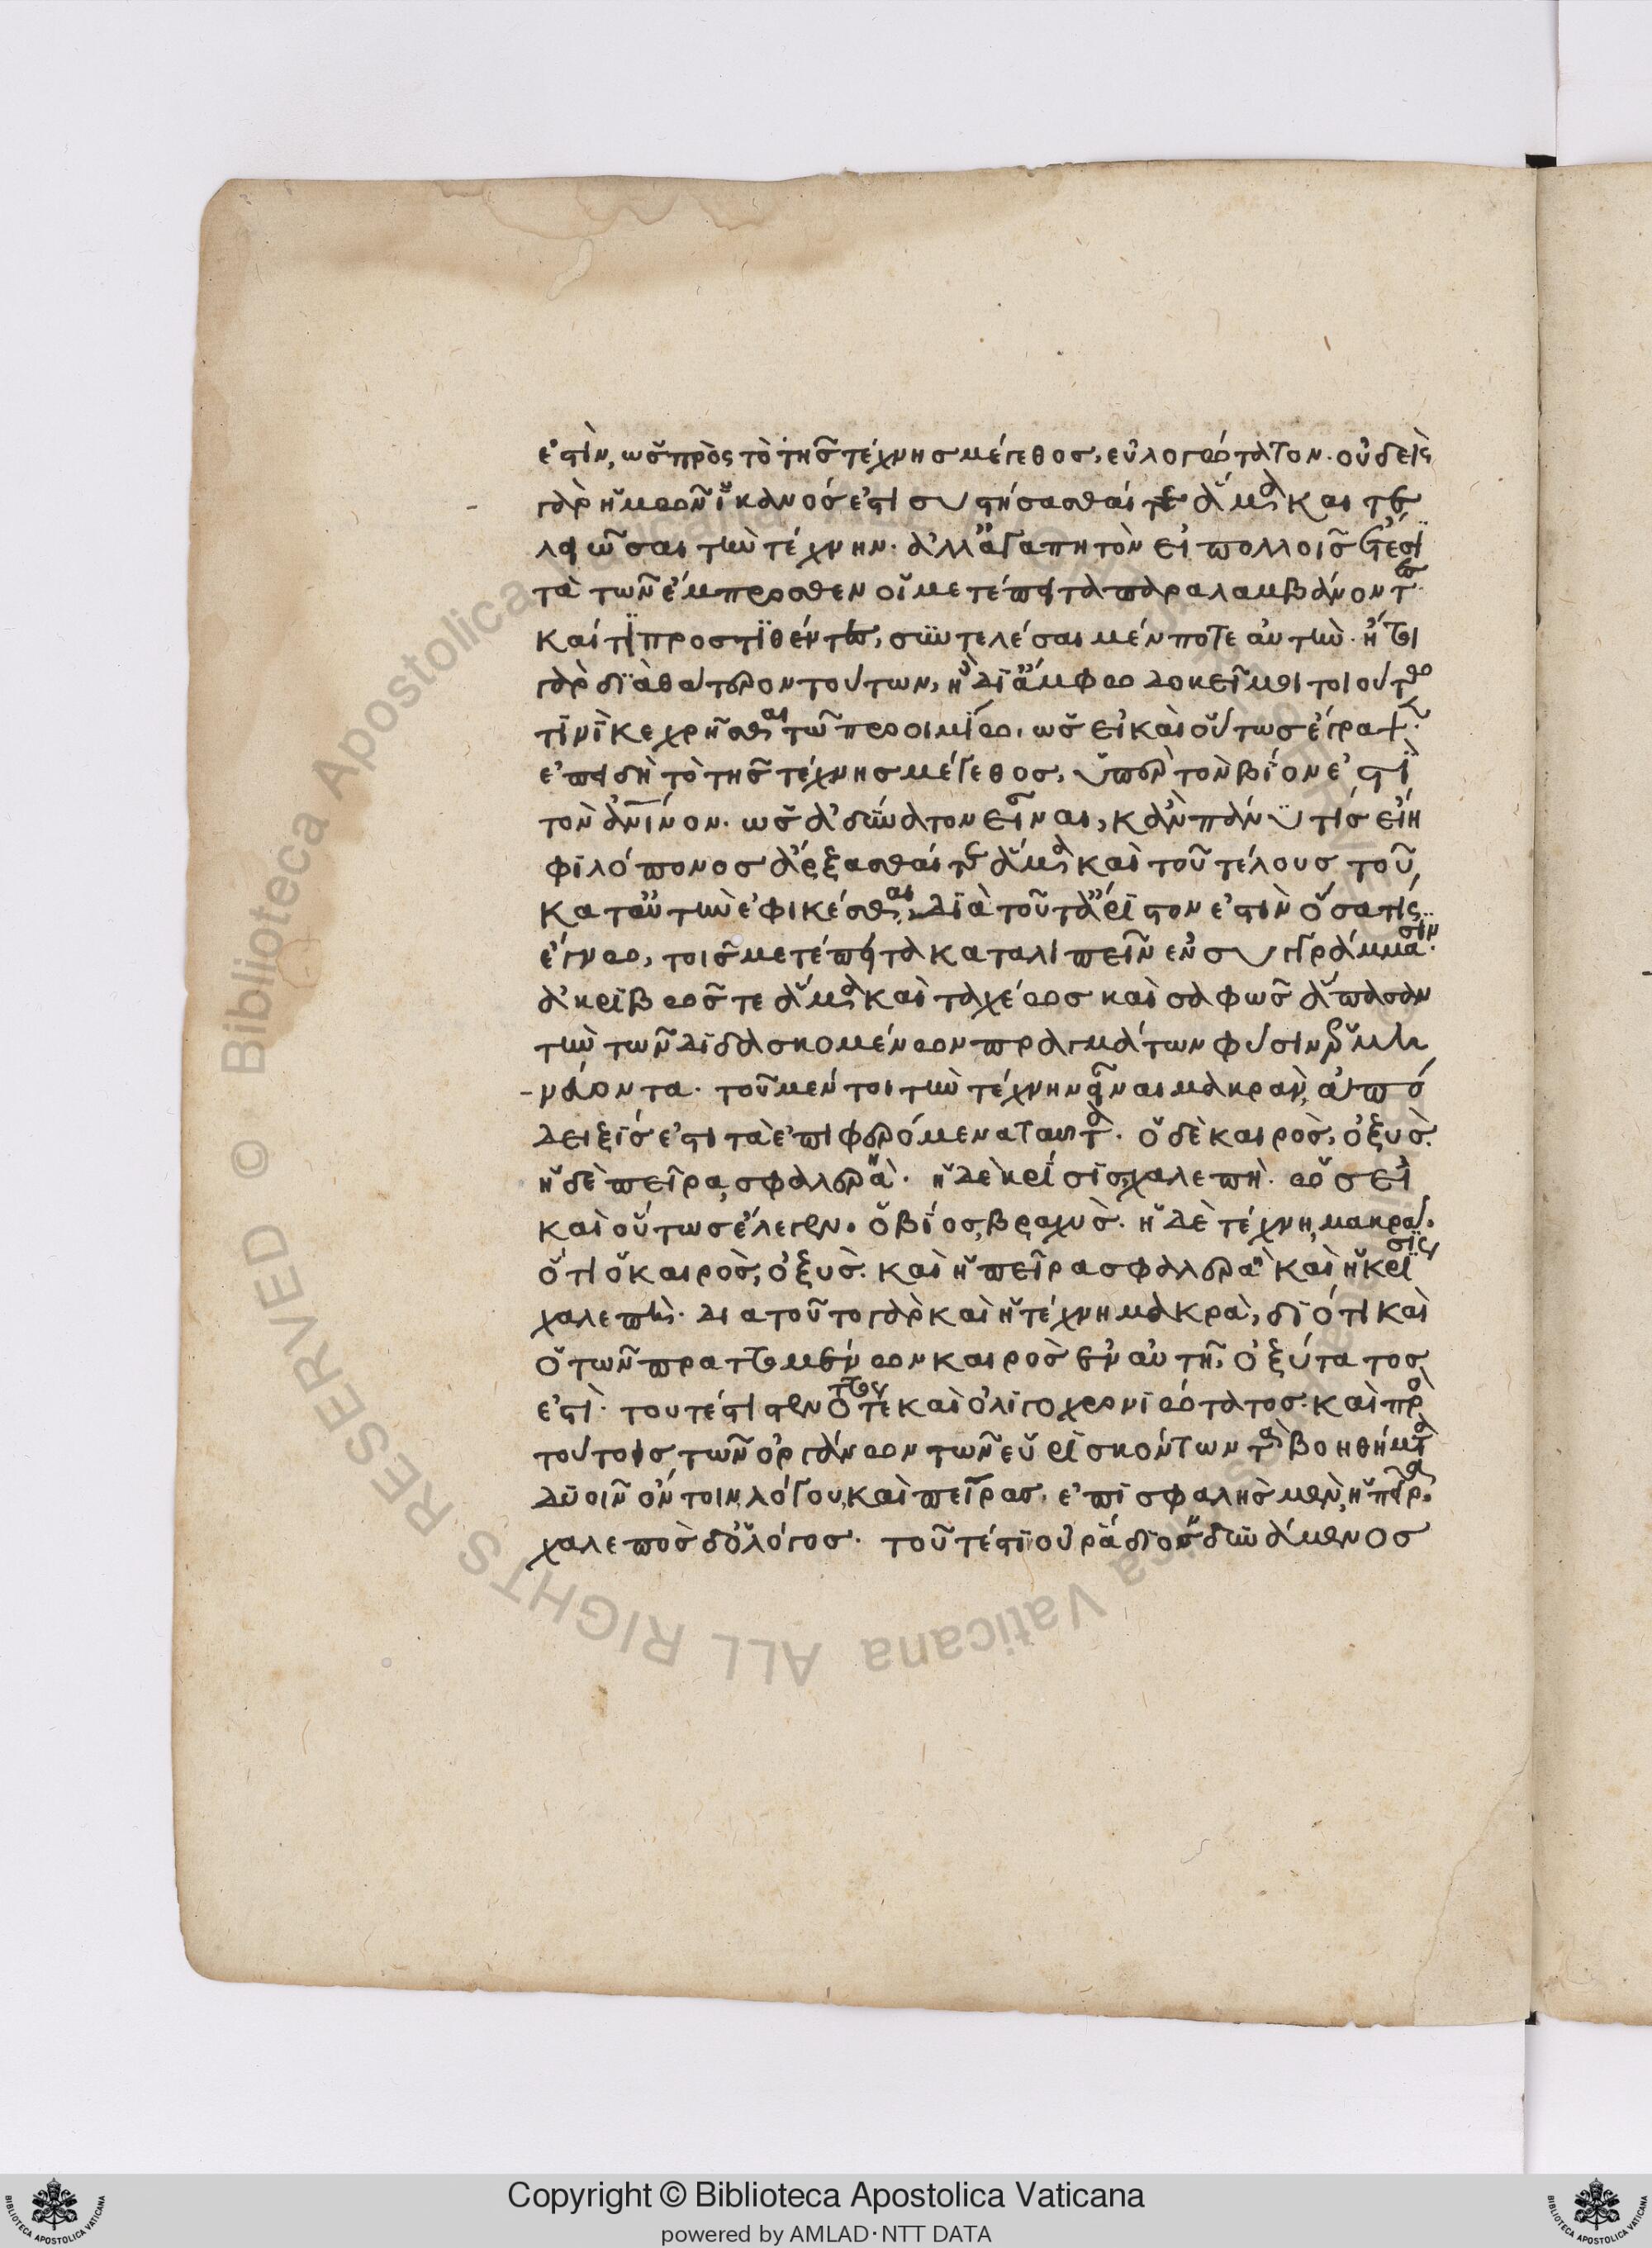 ἐστὶν, ὡς πρὸς τὸ τῆς τέχνης μέγεθος, εὐλογώτατον. οὐδεὶς
γὰρ ἡμῶν ἱκανός ἐστι συστήσασθαί τε ἅμα καὶ τε
λειῶσαι τὴν τέχνην. ἀλλ' ἀγαπητὸν εἰ πολλοῖς ἔτεσι
τὰ τῶν ἔμπροσθεν οἱ μετέπειτα παραλαμβάνοντες
καί τι προστιθέντες, συντελέσαι μέν ποτε αὐτὴν. ἤτοι
γὰρ διὰ θάτερον τούτων, ἢ δι' ἄμφω δοκεῖ μοι τοιούτῳ
τινὶ κεχρῆσθαι τῷ προοιμίῳ. ὡς εἰ καὶ οὕτως ἔγραψεν.
ἐπειδὴ τὸ τῆς τέχνης μέγεθος, ὑπὲρ τὸν βίον ἐστὶ
τὸν ἀνινον. ὡς ἀδύνατον εἶναι, κἂν πάνυ τίς εἴη
φιλόπονος ἄρξασθαί τε ἅμα καὶ τοῦ τέλους τοῦ
κατ' αὐτὴν ἐφικέσθαι, διὰ τοῦτ' ἄριστον ἐστὶν ὅσα τίς
ἔγνω, τοῖς μετέπειτα καταλιπεῖν ἐν συγγράμμασιν.
ἀκριβῶς τε ἅμα καὶ ταχέως καὶ σαφῶς ἅπασαν
τὴν τῶν διδασκομένων πραγμάτων φύσιν ἑρμη
νεύοντα. τοῦ μέντοι τὴν τέχνην εἶναι μακρὰν, ἀπό
δειξίς ἐστι τὰ ἐπιφερόμενα ταυτὰ. ὁ δὲ καιρὸς, ὀξὺς.
ἡ δὲ πεῖρα, σφαλερὰ. ἡ δὲ κρίσις, χαλεπὴ. ὡς εἰ
καὶ οὕτως ἔλεγεν. ὁ βίος, βραχὺς. ἡ δὲ τέχνη, μακρά.
ὅτι ὁ καιρὸς, ὀξὺς. καὶ ἡ πεῖρα σφαλερὰ καὶ ἡ κρίσις
χαλεπὴ. διὰ τοῦτο γὰρ καὶ ἡ τέχνη μακρὰ, διότι καὶ
ὁ τῶν πραττομένων καιρὸς ἐν αὐτῆ, ὀξύτατος
ἐστὶ. τουτέστι στενότατός τε καὶ ὀλιγοχρονιώτατος. καὶ πρὸ
τούτοις τῶν ὀργάνων τῶν εὑρισκόντων τὰ βοηθήματα
δυοῖν ὄντοιν, λόγου, καὶ πεῖρας, ἐπισφαλὴς μὲν, ἡ πεῖρα.
χαλεπὸς δ' ὁ λόγος. τοῦτέστι οὐ ῥᾴδιος δυνάμενος
Copyright © Biblioteca Apostolica Vaticana
powered by AMLAD·NTT DATA